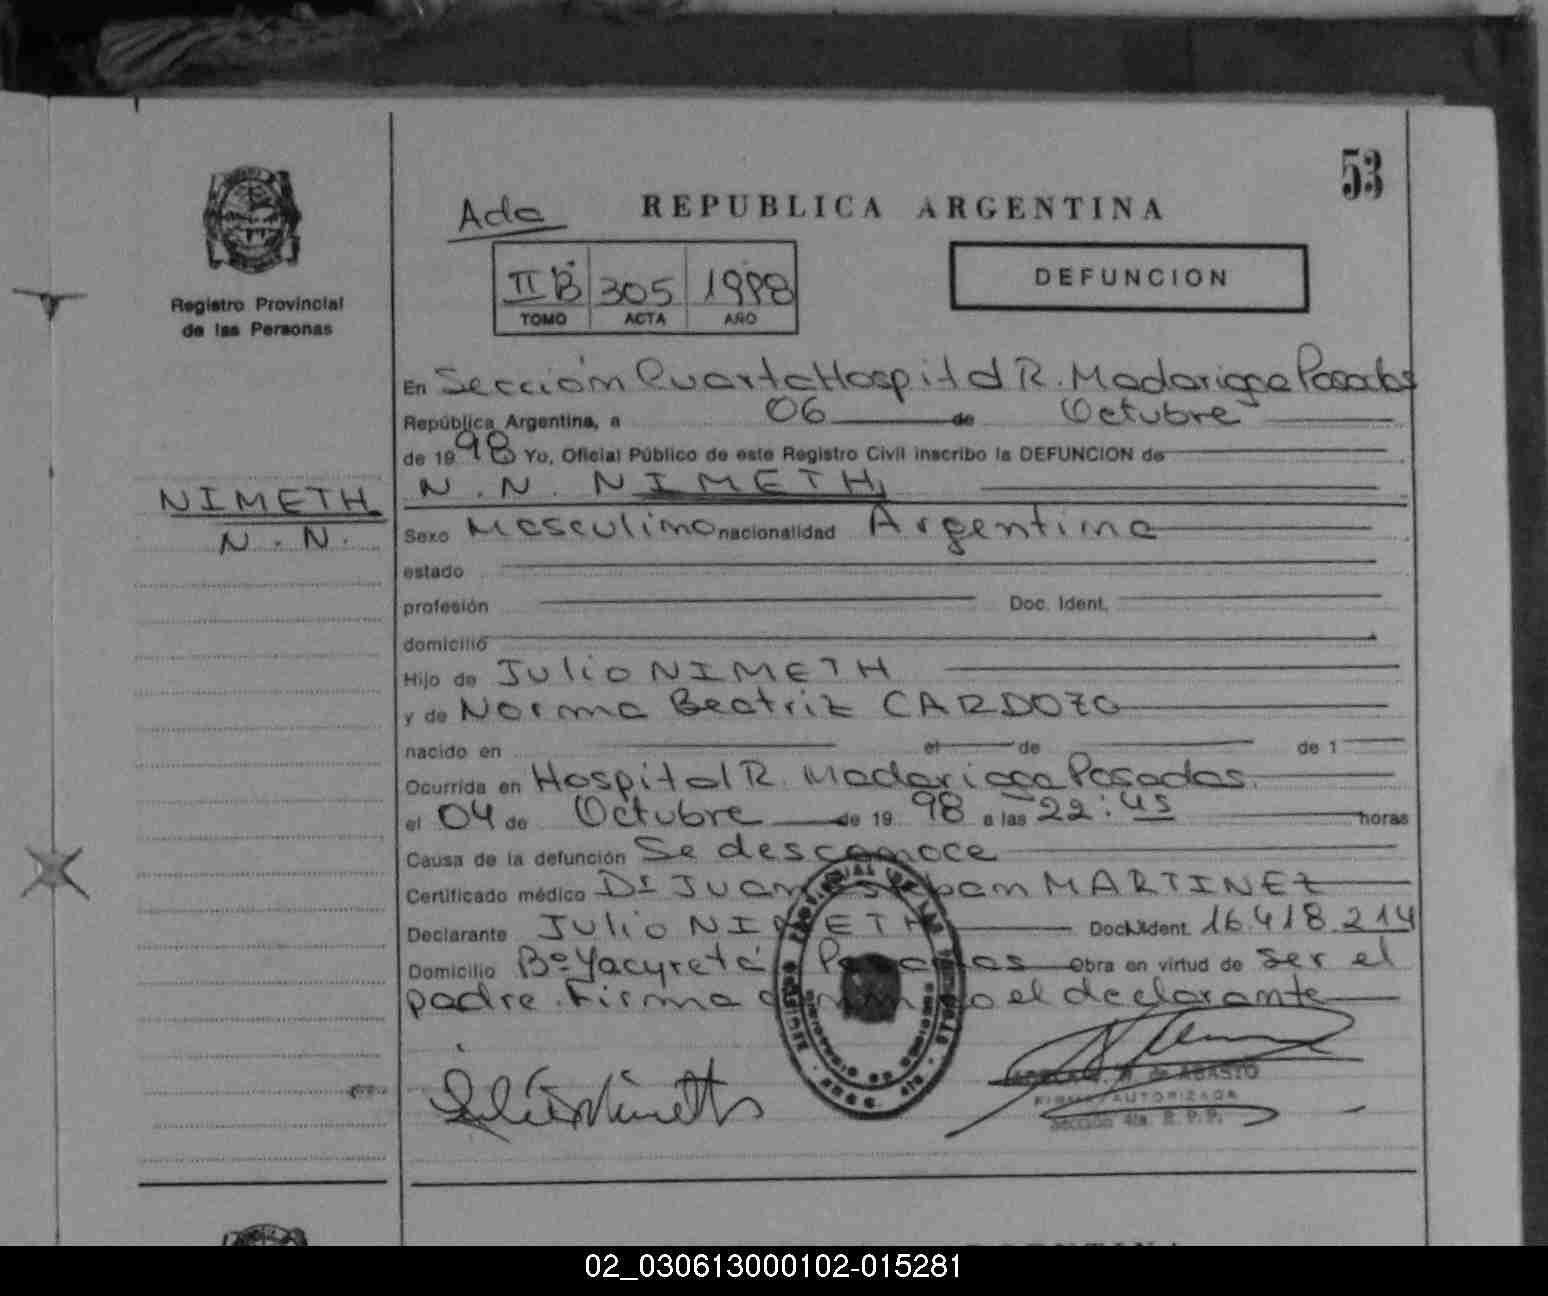 53
REPUBLICA ARGENTINA
Registro Provincial
de las Personas
II B 305 1998
TOMO ACTA AÑO
DEFUNCION
NIMETH
N.N.
En Sección Cuarta Hospital R. Madariaga Posadas
República Argentina, a 06 de Octubre
de 1998 Yo, Oficial Público de este Registro Civil inscribo la DEFUNCION de
N.N. NIMETH
Sexo Masculino nacionalidad Argentina
estado
profesión Doc. Ident.
domicilio
Hijo de Julio NIMETH
y de Norma Beatriz CARDOZO
nacido en el de de 1
Ocurrida en Hospital R. Madariaga Posadas.
el 04 de Octubre de 1998 a las 22:45 horas
Causa de la defunción Se desconoce
Certificado médico Dr Juan MARTINEZ
Declarante Julio NIMETH Doc. Ident. 16.418.214
Domicilio Bº Yacyretá Posadas obra en virtud de ser el
padre. Firma conmigo el declarante
de ABASTO
FIRMA AUTORIZADA
Sección 4ta. R.P.P.
02_030613000102-015281